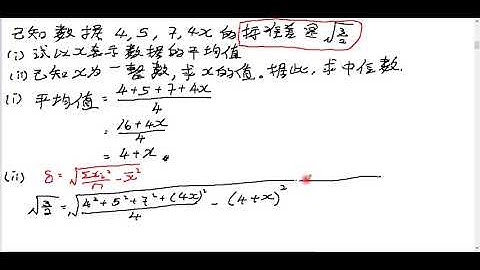 已知數據 4, 5, 7, 4x 的标准差是 √(3/2)
(i) 試以x表示數據的平均值
(ii) 已知x为一整數, 求x的值。据此, 求中位數.
(i) 平均值 = (4+5+7+4x)/4
= (16+4x)/4
= 4+x
(ii) δ = √(Σx²/n - x̄²)
√(3/2) = √((4²+5²+7²+(4x)²)/4 - (4+x)²)